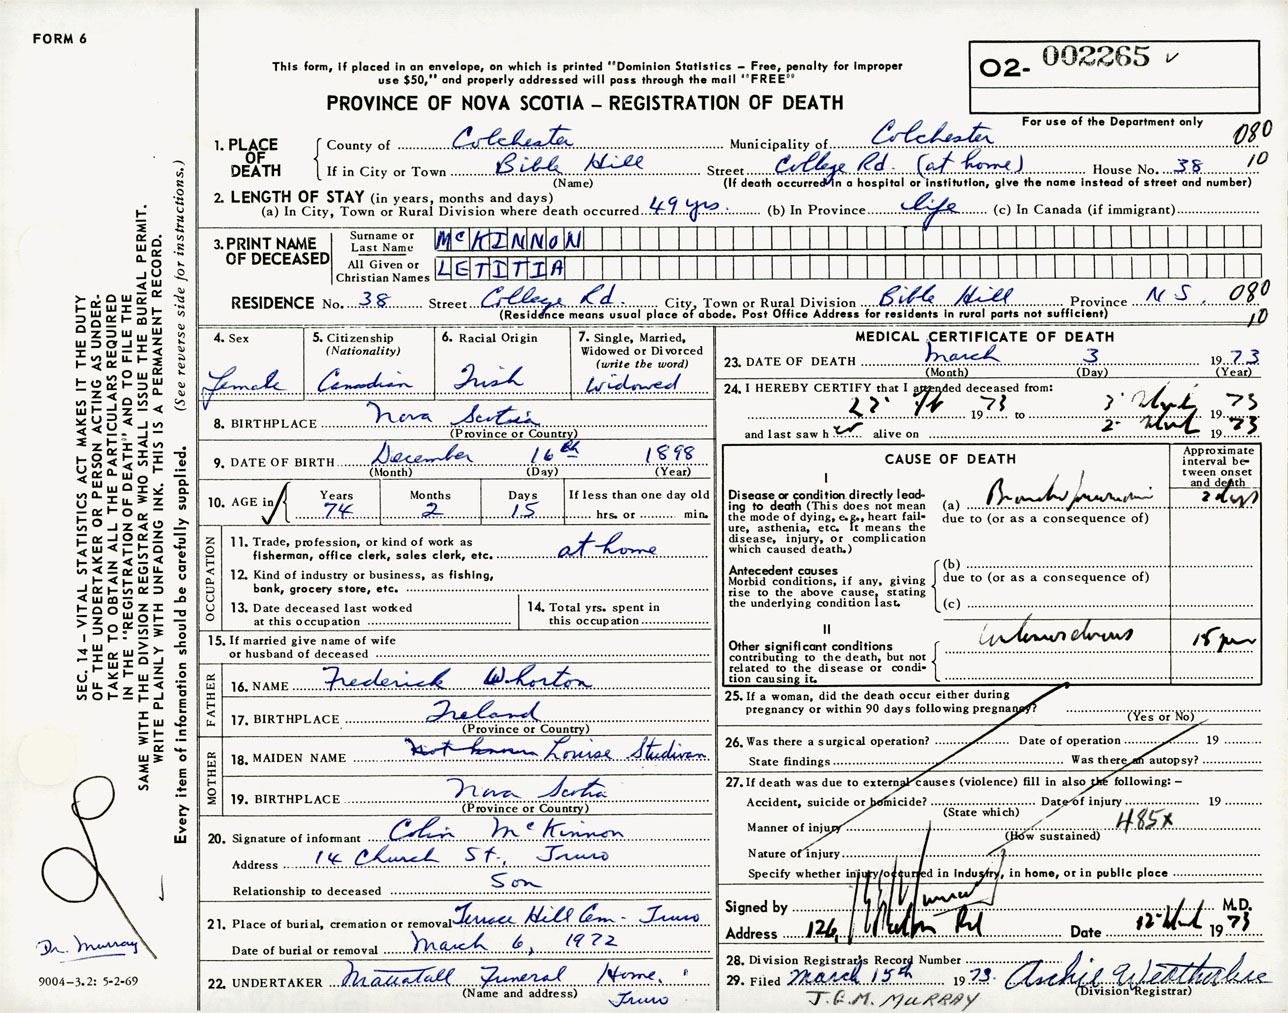 FORM 6
This form, if placed in an envelope, on which is printed "Dominion Statistics – Free, penalty for improper
use $50," and properly addressed will pass through the mail "FREE"
PROVINCE OF NOVA SCOTIA – REGISTRATION OF DEATH
02- 002265
For use of the Department only
SEC. 14 – VITAL STATISTICS ACT MAKES IT THE DUTY
OF THE UNDERTAKER OR PERSON ACTING AS UNDER-
TAKER TO OBTAIN ALL THE PARTICULARS REQUIRED
IN THE "REGISTRATION OF DEATH" AND TO FILE THE
SAME WITH THE DIVISION REGISTRAR WHO SHALL ISSUE THE BURIAL PERMIT.
WRITE PLAINLY WITH UNFADING INK. THIS IS A PERMANENT RECORD.
Every item of information should be carefully supplied. (See reverse side for instructions.)
1. PLACE OF DEATH
County of Colchester Municipality of Colchester 080
If in City or Town Bible Hill Street College Rd. (at home) House No. 38 10
(Name) (If death occurred in a hospital or institution, give the name instead of street and number)
2. LENGTH OF STAY (in years, months and days)
(a) In City, Town or Rural Division where death occurred 49 yrs. (b) In Province life (c) In Canada (if immigrant)
3. PRINT NAME OF DECEASED
Surname or Last Name McKINNON
All Given or Christian Names LETITIA
RESIDENCE No. 38 Street College Rd. City, Town or Rural Division Bible Hill Province N.S. 080
(Residence means usual place of abode. Post Office Address for residents in rural parts not sufficient) 10
4. Sex
Female
5. Citizenship
(Nationality)
Canadian
6. Racial Origin
Irish
7. Single, Married,
Widowed or Divorced
(write the word)
Widowed
8. BIRTHPLACE Nova Scotia
(Province or Country)
9. DATE OF BIRTH December 16th 1898
(Month) (Day) (Year)
10. AGE in Years 74 Months 2 Days 15 If less than one day old
hrs. or min.
OCCUPATION
11. Trade, profession, or kind of work as
fisherman, office clerk, sales clerk, etc. at home
12. Kind of industry or business, as fishing,
bank, grocery store, etc.
13. Date deceased last worked
at this occupation
14. Total yrs. spent in
this occupation
15. If married give name of wife
or husband of deceased
FATHER
16. NAME Frederick Whorton
17. BIRTHPLACE Ireland
(Province or Country)
MOTHER
18. MAIDEN NAME not known Louise Studivan
19. BIRTHPLACE Nova Scotia
(Province or Country)
20. Signature of informant Colin McKinnon
Address 14 Church St., Truro
Relationship to deceased Son
21. Place of burial, cremation or removal Terrace Hill Cem- Truro
Date of burial or removal March 6, 1972
22. UNDERTAKER Mattatall Funeral Home,
(Name and address) Truro
MEDICAL CERTIFICATE OF DEATH
23. DATE OF DEATH March 3 1973
(Month) (Day) (Year)
24. I HEREBY CERTIFY that I attended deceased from:
1973 to 3 1973
and last saw her alive on 2 1973
CAUSE OF DEATH
Approximate
interval be-
tween onset
and death
I
Disease or condition directly lead-
ing to death (This does not
mean the mode of dying, e.g., heart fail-
ure, asthenia, etc. It means the
disease, injury, or complication
which caused death.)
(a) Bronchopneumonia 2 days
due to (or as a consequence of)
Antecedent causes
Morbid conditions, if any, giving
rise to the above cause, stating
the underlying condition last.
(b)
due to (or as a consequence of)
(c)
II
Other significant conditions
contributing to the death, but not
related to the disease or condi-
tion causing it.
25. If a woman, did the death occur either during
pregnancy or within 90 days following pregnancy?
(Yes or No)
26. Was there a surgical operation? Date of operation 19
State findings Was there an autopsy?
27. If death was due to external causes (violence) fill in also the following: –
Accident, suicide or homicide? Date of injury 19
(State which)
Manner of injury 485x
(How sustained)
Nature of injury
Specify whether injury occurred in Industry, in home, or in public place
Signed by M.D.
Address 126, Rd Date 12 1973
28. Division Registrar's Record Number
29. Filed March 15th 1973.
(Division Registrar)
J.G.M. MURRAY
Dr. Murray
9004-3.2: 5-2-69